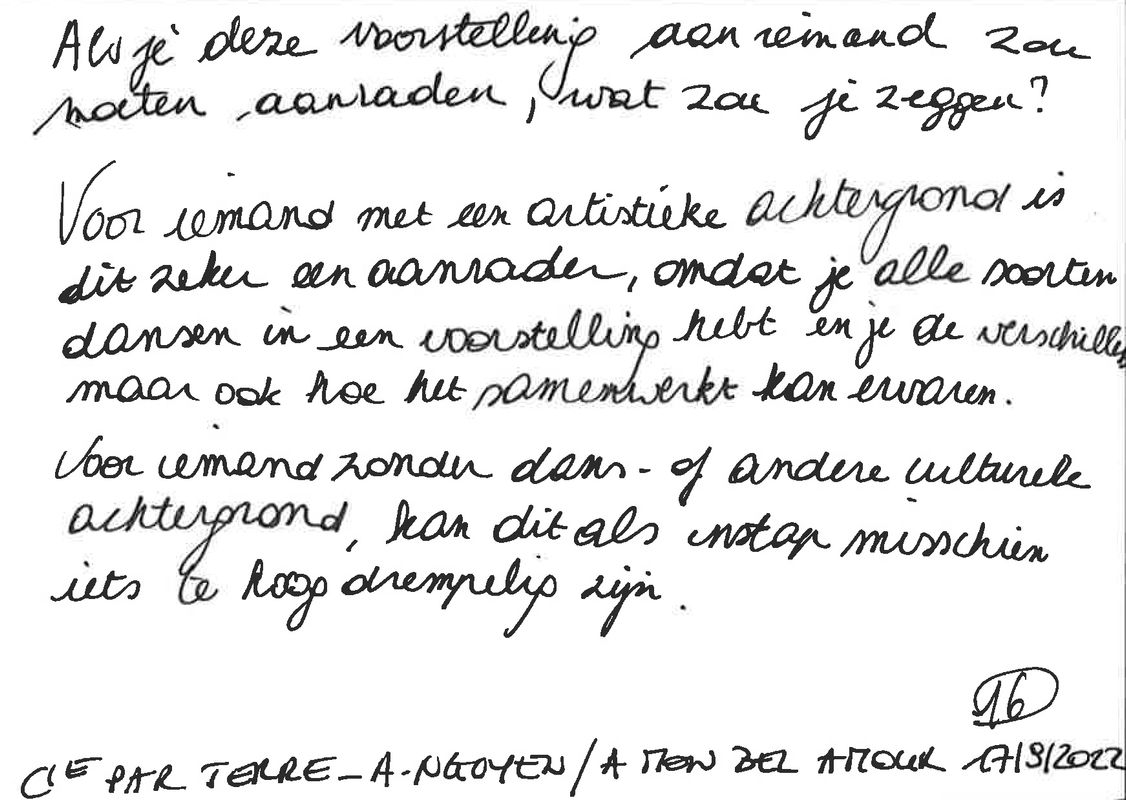 Als je deze voorstelling aan iemand zou
moeten aanraden, wat zou je zeggen?
Voor iemand met een artistieke achtergrond is
dit zeker een aanrader, omdat je alle soorten
dansen in een voorstelling hebt en je de verschillen
maar ook hoe het samenwerkt kan ervaren.
Voor iemand zonder dans- of andere culturele
achtergrond, kan dit als instap misschien
iets te hoogdrempelig zijn.
16
CIE PAR TERRE - A. NGUYEN / A MON BEL AMOUR 17/9/2022